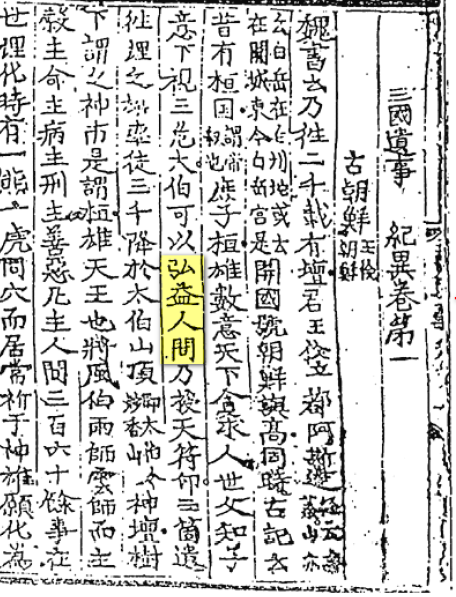 三國遺事 紀異卷第一
古朝鮮 王儉朝鮮
魏書云乃往二千載有壇君王儉立都阿斯達 經云無葉山亦
云白岳在白州地或云在開城東今白岳宮是 開國號朝鮮與高同時古記云
昔有桓国 謂帝釋也 庶子桓雄數意天下貪求人世父知子
意下視三危太伯可以弘益人間乃授天符印三箇遣
徃理之雄率徒三千降於太伯山頂 即太伯今妙香山 神壇樹
下謂之神市是謂桓雄天王也將風伯雨師雲師而主
穀主命主病主刑主善惡凡主人間三百六十餘事在
世理化時有一熊一虎同穴而居常祈于神雄願化為